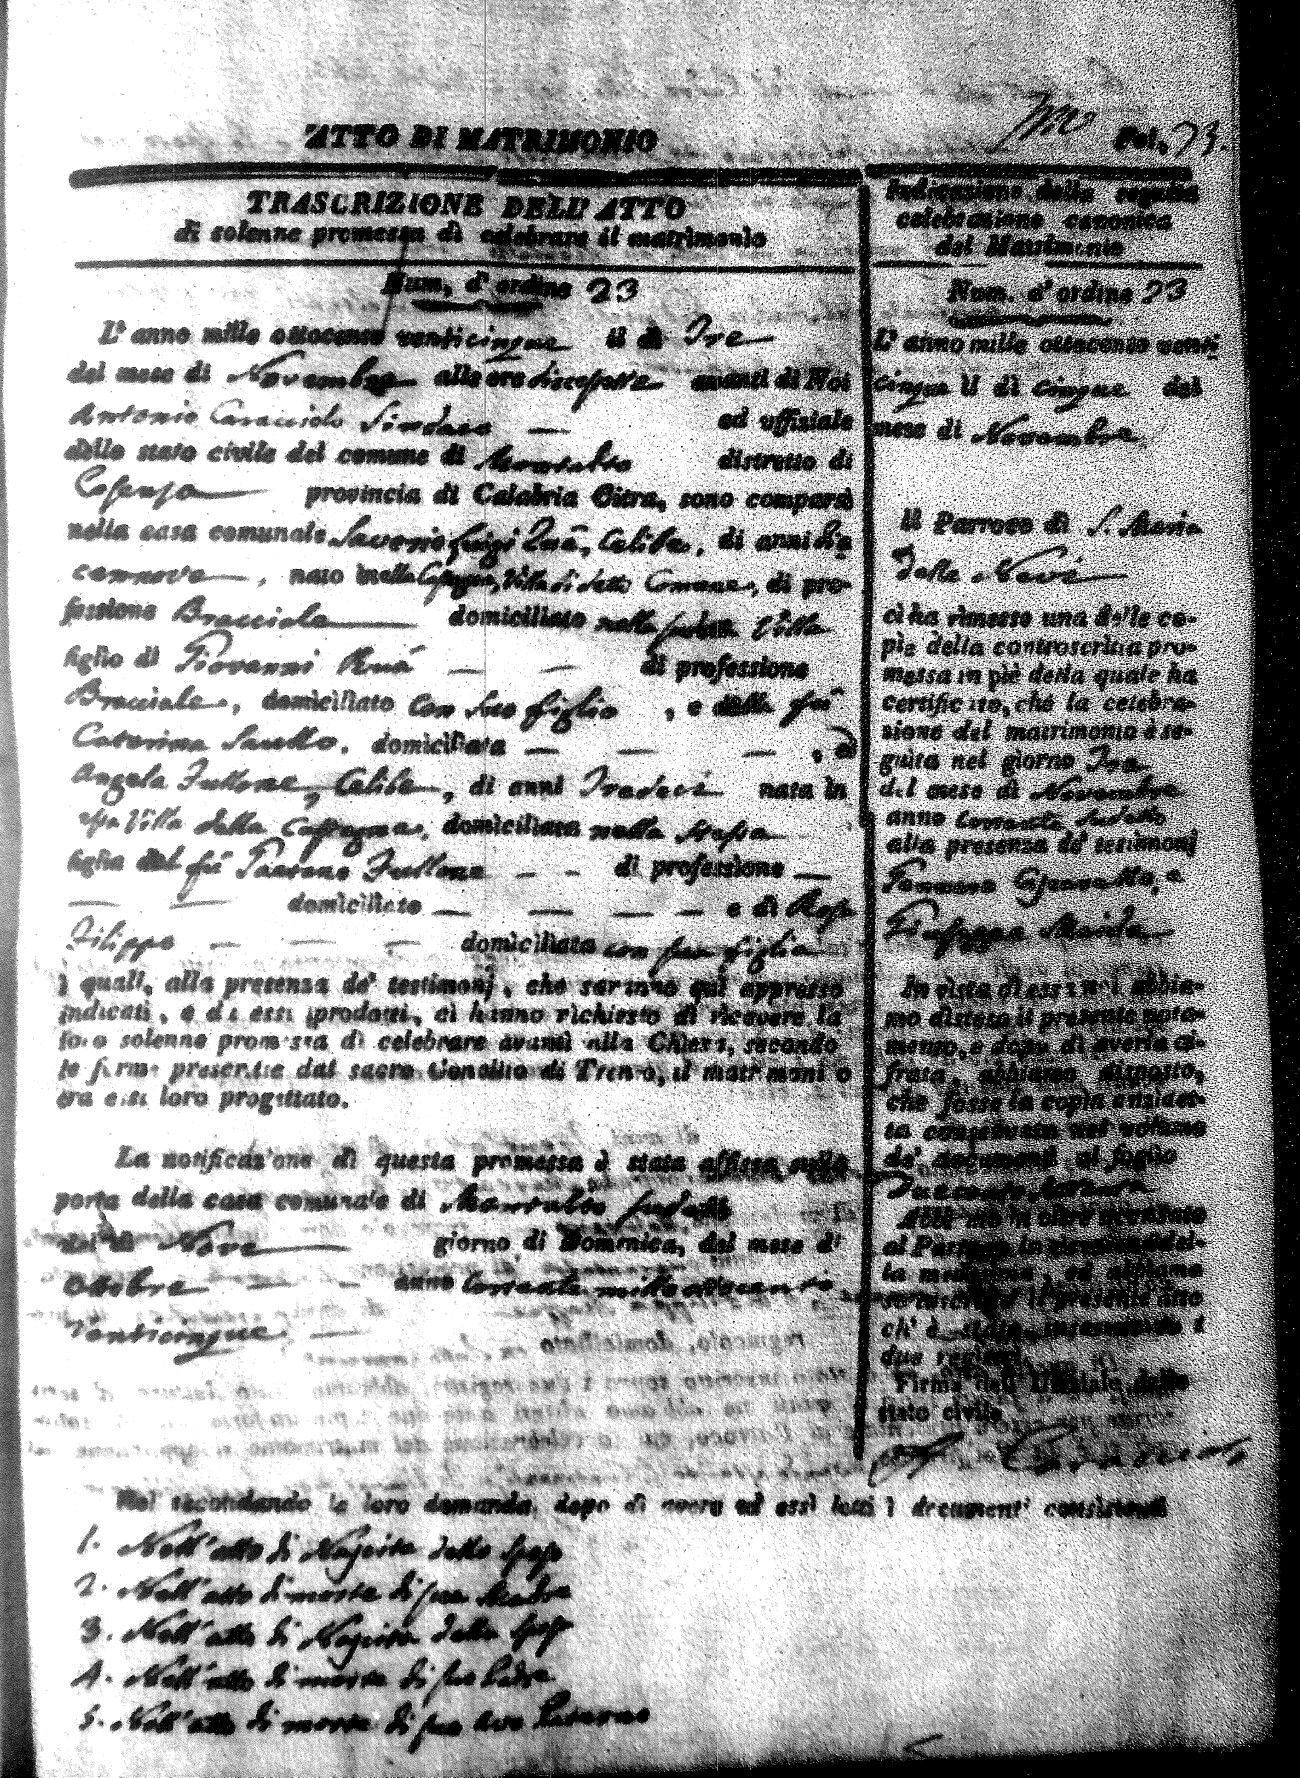 ATTO DI MATRIMONIO
Fol. 23.
TRASCRIZIONE DELL' ATTO
di solenne promessa di celebrare il matrimonio
Num. d' ordine 23
L' anno mille ottocento venticinque il dì Tre
del mese di Novembre alle ore diecesette avanti di Noi
Antonio Caracciolo Sindaco — ed uffiziale
dello stato civile del comune di Montalto distretto di
Cosenza provincia di Calabria Citra, sono comparsi
nella casa comunale Saverio Luigi Ruà, Celibe, di anni
, nato nella Villa di detto Comune, di pro-
fessione Bracciale domiciliato nella Villa
figlio di Giovanni Ruà — — di professione
Bracciale, domiciliato con suo figlio , e della fu
Caterina , domiciliata — — — , ed
Angela Fullone, Celibe, di anni Tredeci nata in
Villa della , domiciliata nella stessa
figlia del fu Gaetano Fullone — — di professione —
— — domiciliato — — — — e di Rosa
Filippo — — — domiciliata con sua figlia
i quali, alla presenza de' testimonj, che saranno quì appresso
indicati, e da essi prodotti, ci hanno richiesto di ricevere la
loro solenne promessa di celebrare avanti alla Chiesa, secondo
le forme prescritte dal sacro Concilio di Trento, il matrimonio
tra essi loro progettato.
La notificazione di questa promessa è stata affissa sulla
porta della casa comunale di Montalto sudetto
del dì Nove giorno di Domenica, del mese di
Ottobre — — anno corrente mille ottocento
venticinque. —
Noi secondando la loro domanda, dopo di avere ad essi letti i documenti consistenti
1. Nell'atto di Nascita dello sposo
2. Nell'atto di morte di sua Madre
3. Nell'atto di Nascita della sposa
4. Nell'atto di morte di suo Padre
5. Nell'atto di morte di suo Avo Paterno
Indicazione della seguita
celebrazione canonica
del Matrimonio
Num. d' ordine 23
L' anno mille ottocento venti
cinque il dì cinque del
mese di Novembre
Il Parroco di S. Maria
della Neve
ci ha rimesso una delle co-
pie della controscritta pro-
messa in piè della quale ha
certificato, che la celebra-
zione del matrimonio è se-
guita nel giorno Tre
del mese di Novembre
anno corrente sudetto
alla presenza de' testimonj
Giuseppe
In vista di essa noi abbia-
mo disteso il presente nota-
mento, e dopo di averla ci-
frata, abbiamo disposto,
che fosse la copia anzidet-
ta conservata nel volume
de' documenti al foglio
Abbiamo in oltre accusato
al Parroco la ricezione del-
la medesima, ed abbiamo
sottoscritto il presente atto
ch' è stato inserito su i
due registri.
Firma dell' Uffiziale dello
stato civile